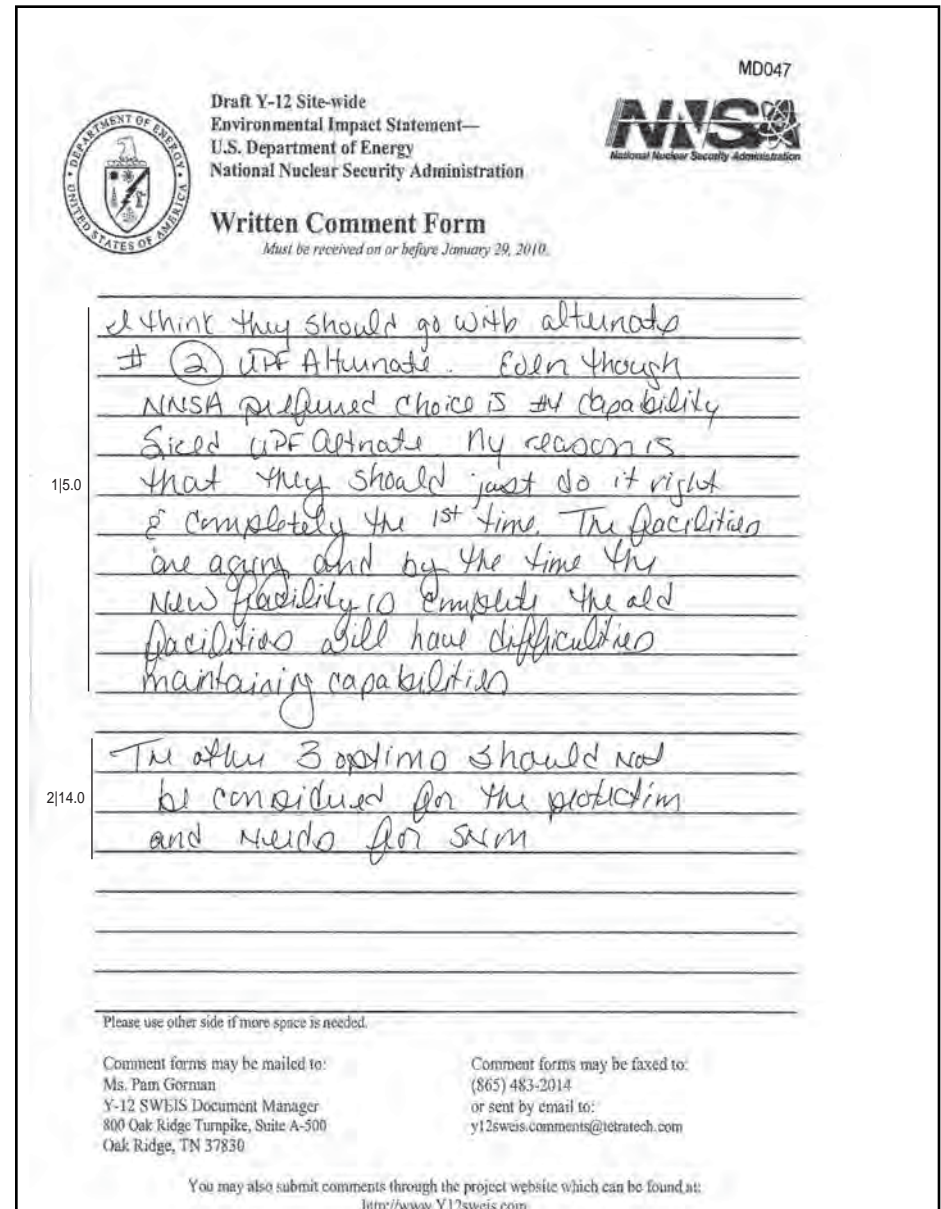 MD047
DEPARTMENT OF ENERGY
UNITED STATES OF AMERICA
Draft Y-12 Site-wide
Environmental Impact Statement—
U.S. Department of Energy
National Nuclear Security Administration
NNSA
National Nuclear Security Administration
Written Comment Form
Must be received on or before January 29, 2010.
I think they should go with alternate
# 2 UPF Alternate. Even though
NNSA preferred choice is #4 Capability
Sized UPF Altnate My reason is
1|5.0
that they should just do it right
& completely the 1st time. The facilities
are aging and by the time the
New facility is complete the old
facilities will have difficulties
maintaining capabilities
The other 3 options should not
2|14.0
be considered for the protection
and needs for SNM
Please use other side if more space is needed.
Comment forms may be mailed to:
Ms. Pam Gorman
Y-12 SWEIS Document Manager
800 Oak Ridge Turnpike, Suite A-500
Oak Ridge, TN 37830
Comment forms may be faxed to:
(865) 483-2014
or sent by email to:
y12sweis.comments@tetratech.com
You may also submit comments through the project website which can be found at:
http://www.Y12sweis.com